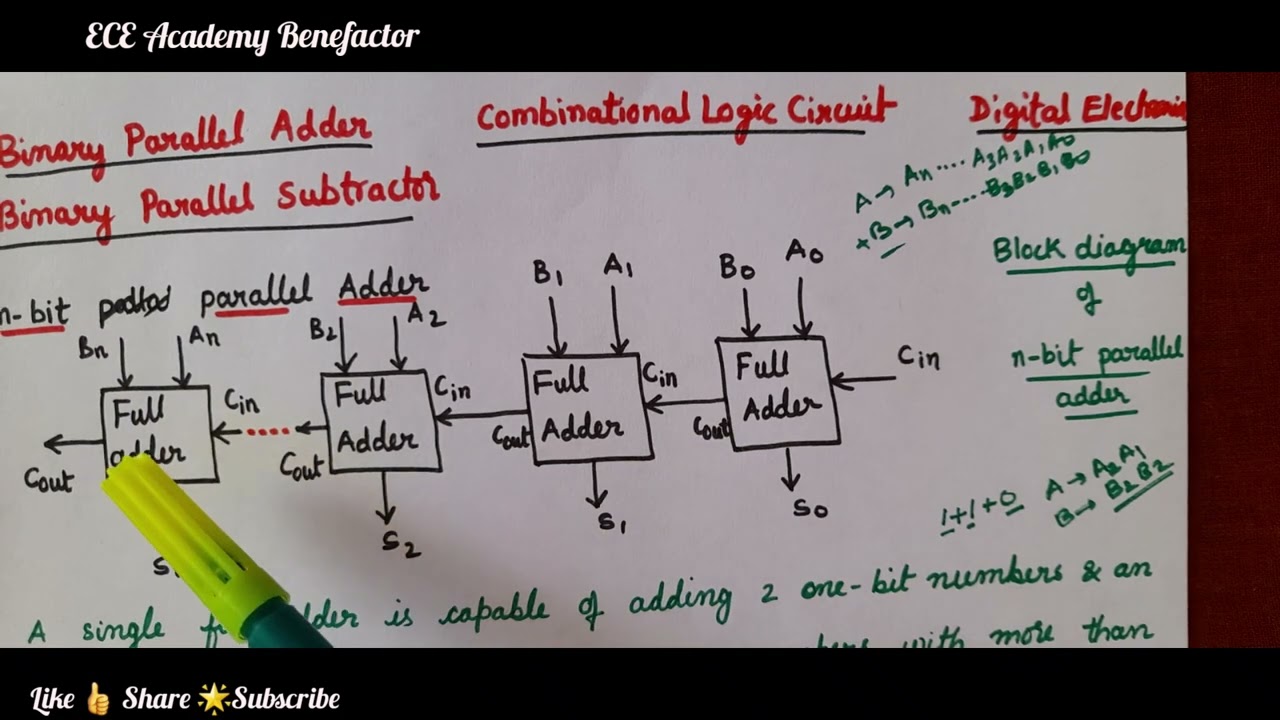 ECE Academy Benefactor
Binary Parallel Adder
Combinational Logic Circuit
Digital Electroni
Binary Parallel Subtractor
A → An .... A3A2A1A0
+B → Bn ....B3B2B1B0
Block diagram
of
n-bit parallel
adder
n-bit parallel Adder
Bn An
B2 A2
B1 A1
B0 A0
Full adder
Full Adder
Full Adder
Full Adder
Cin
Cin
Cin
Cin
Cout
Cout
Cout
Cout
S2
S1
S0
1+1+0
A → A2A1
B → B2B2
A single adder is capable of adding 2 one-bit numbers & an
with more than
Like 👍 Share 🌟Subscribe